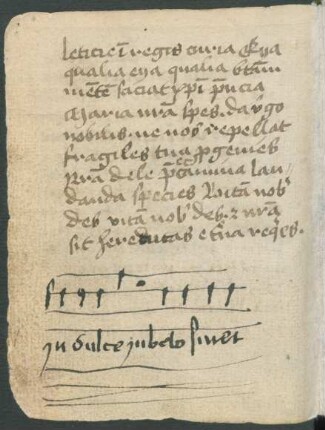 leticie i regis curia Eya
qualia eya qualia btam
mete saciat xpi pncia
Maria nra spes da vgo
nobilis ne nos repellat
fragiles tua pgenies
Nra dele pctamina lau
danda species vitam nob
des vitam nob des z nra
sit hereditas eterna reqes.
In dulci jubilo